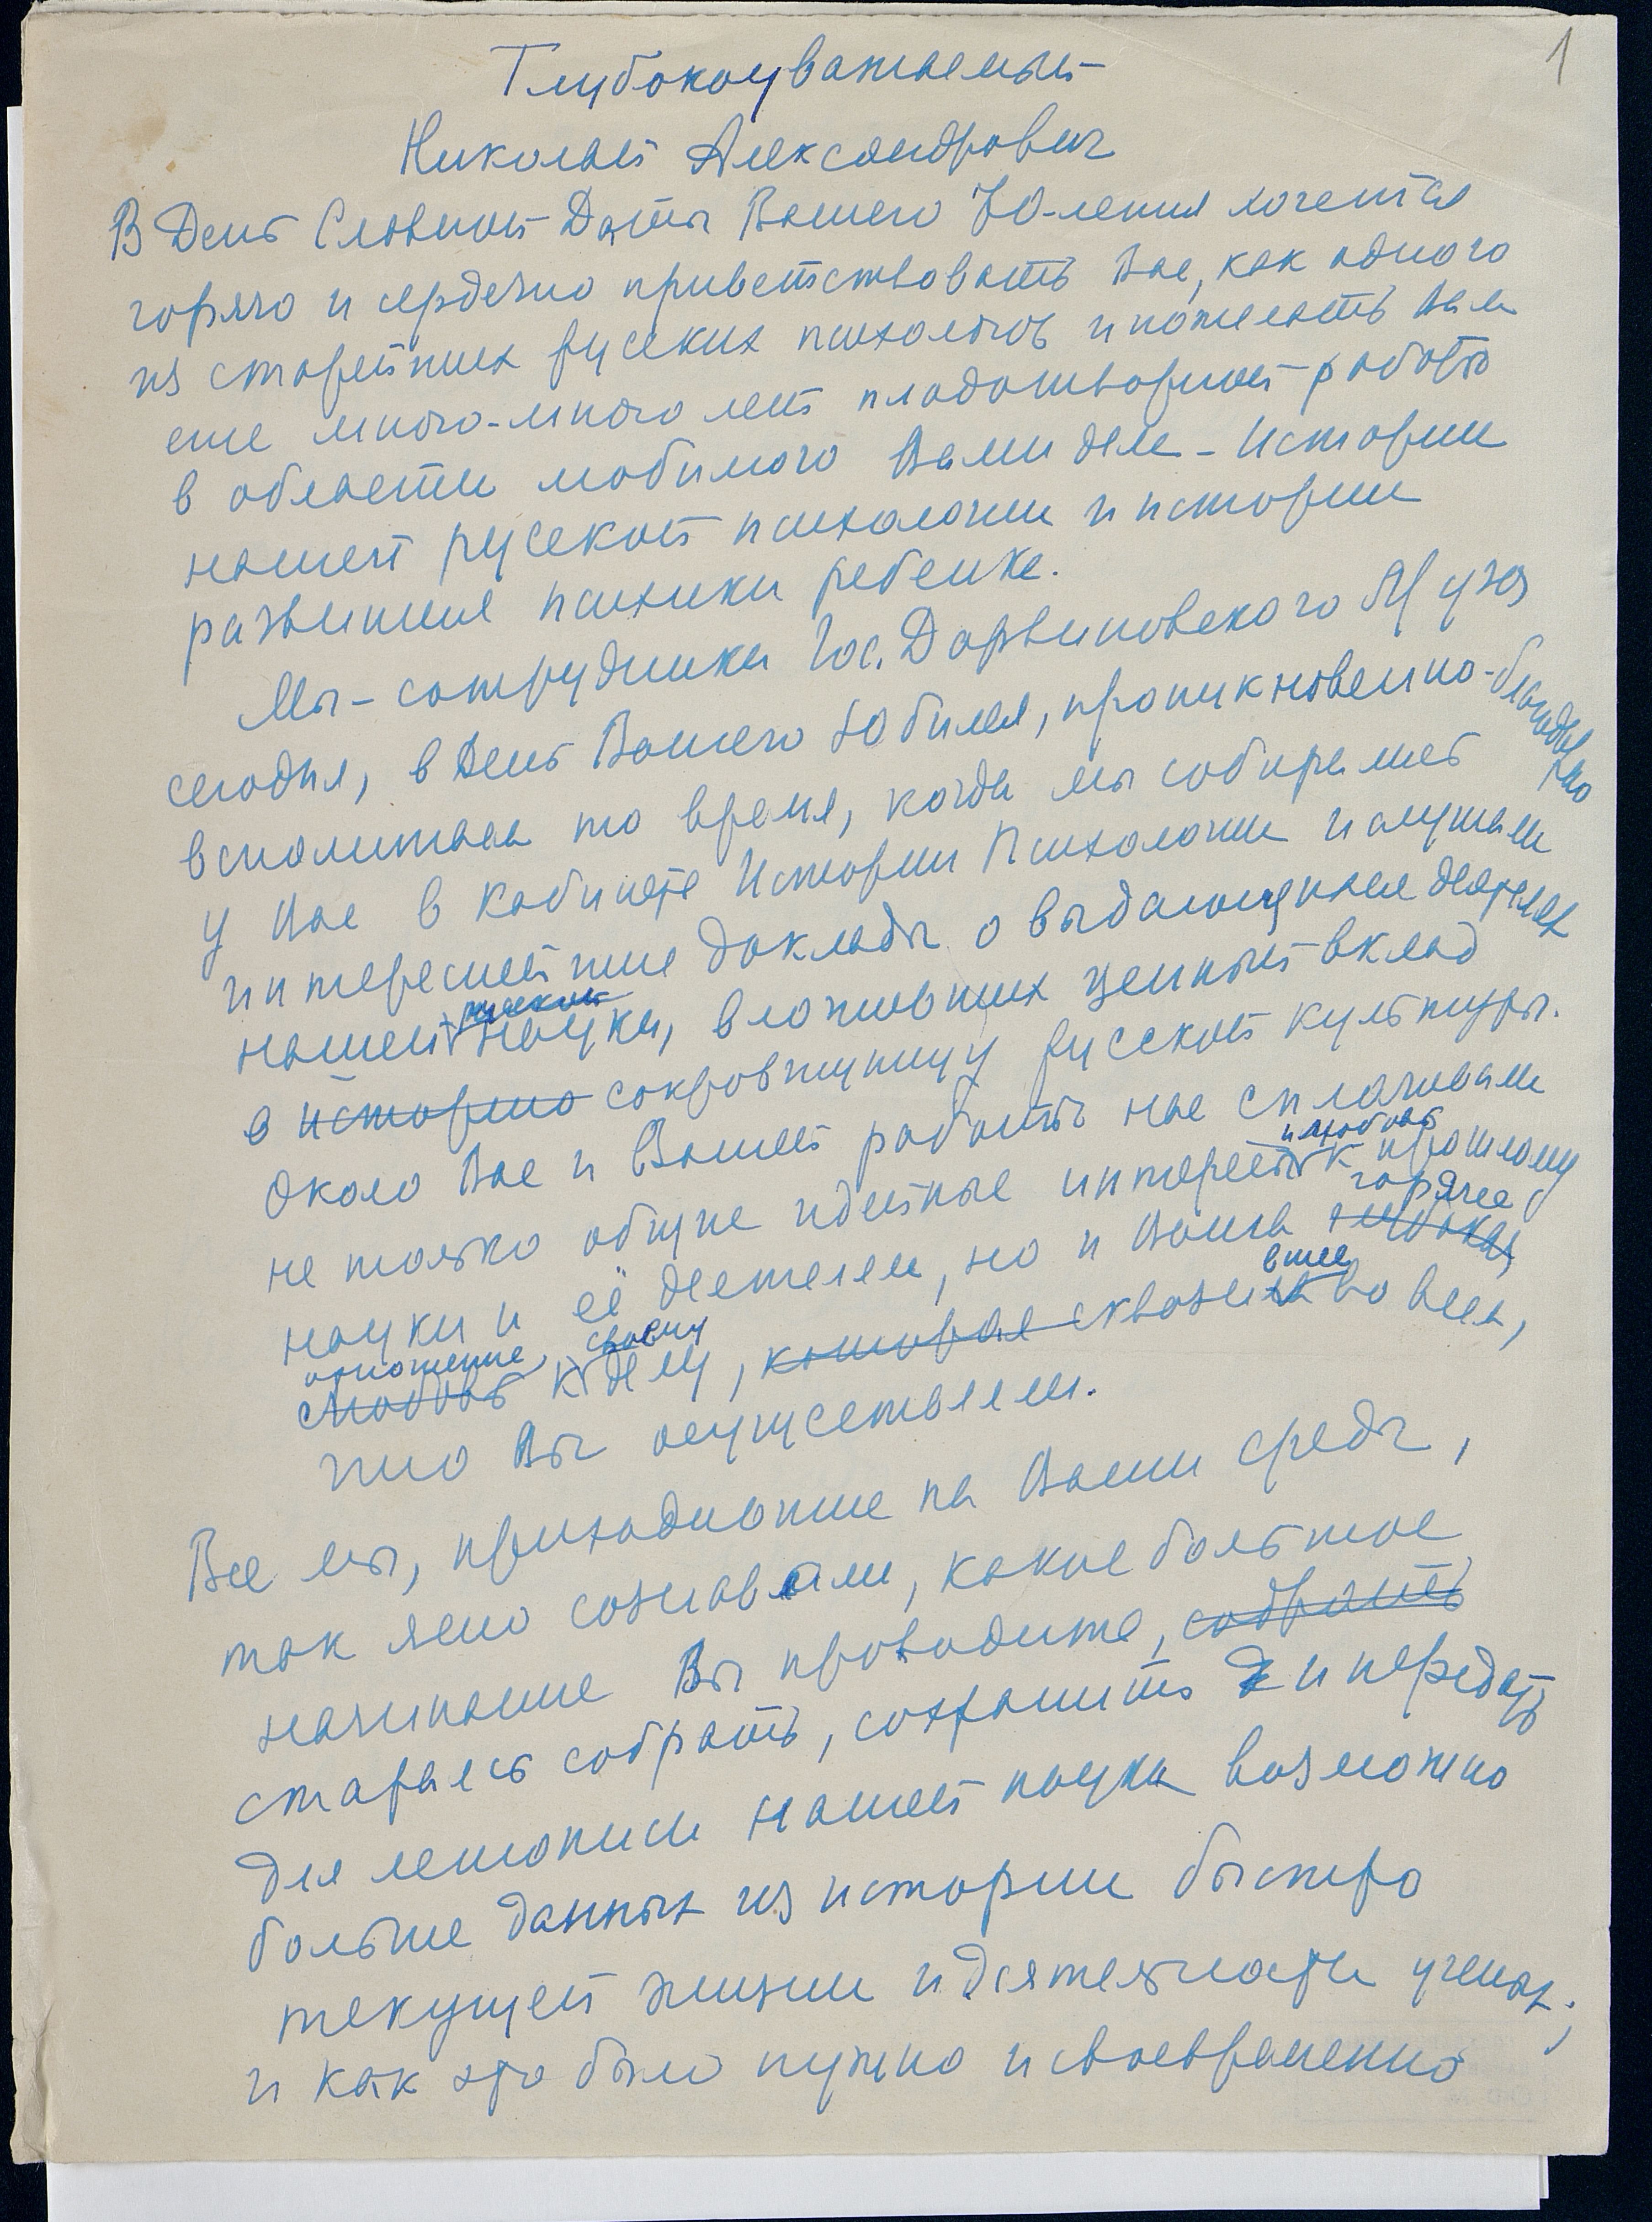 1
Глубокоуважаемый
Николай Александрович
В День Славной Даты Вашего 70-летия хочется
горячо и сердечно приветствовать Вас, как одного
из старейших русских психологов и пожелать Вам
еще много-много лет плодотворной работы
в области любимого Вами дела - Истории
нашей русской психологии и истории
развития психики ребенка.
Мы - сотрудники Гос. Дарвиновского Музея
сегодня, в День Вашего Юбилея, проникновенно-благодарно
вспоминаем то время, когда мы собирались
у Вас в Кабинете Истории Психологии и слушали
интереснейшие доклады о выдающихся деятелях
русской
нашей науки, вложивших ценный вклад
в историю сокровищницу русской культуры.
Около Вас и Вашей работы нас сплачивали
и любовь
не только общие идейные интересы к прошлому
горячее
науки и её деятелям, но и Ваша глубокая
отношение, своему вшее
любовь к делу, которая сквози во всем,
что Вы осуществляли.
Все мы, приходившие на Ваши среды,
так ясно сознавали, какое большое
начинание Вы проводите, собрать
стараясь собрать, сохранить и передать
для летописи нашей науки возможно
больше данных из истории быстро
текущей жизни и деятельности ученых;
и как это было нужно и своевременно